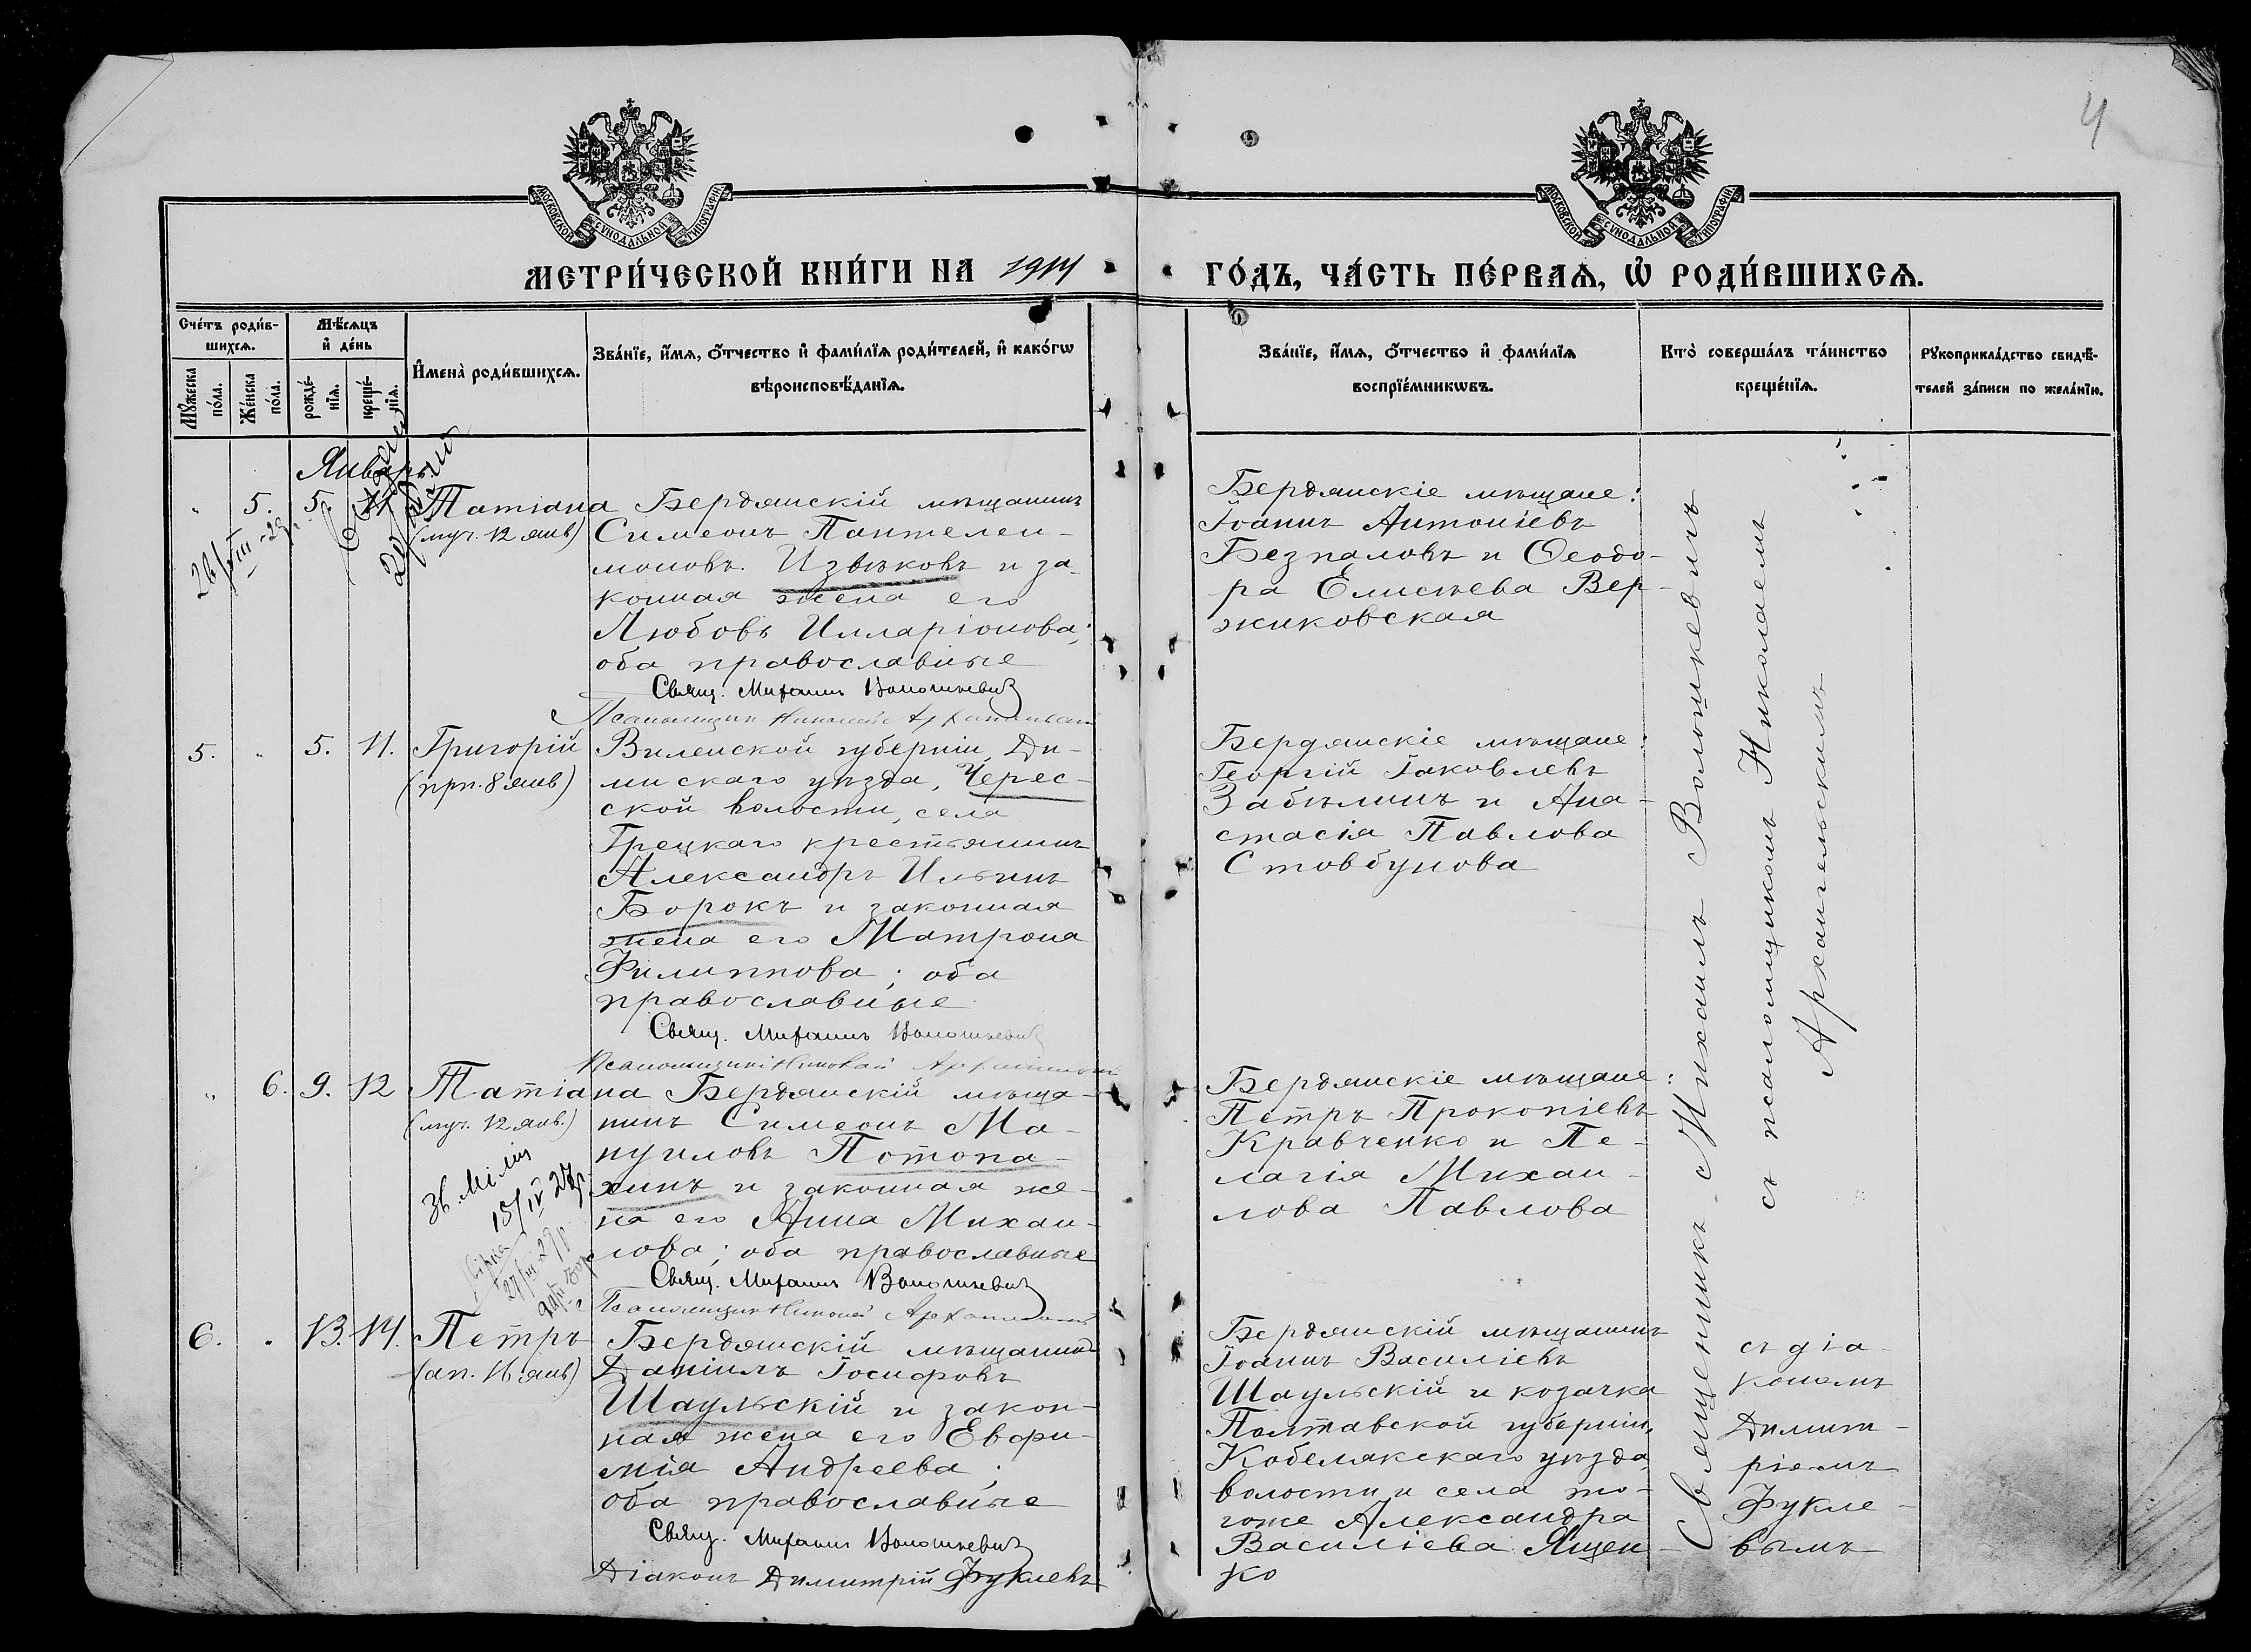 4
МОСКОВСКОЙ СѴНОДАЛЬНОЙ ТИПОГРАФІИ
МОСКОВСКОЙ СѴНОДАЛЬНОЙ ТИПОГРАФІИ
МЕТРИ́ЧЕСКОЙ КНИ́ГИ НА 1914 ГО́ДЪ, ЧА́СТЬ ПЕ́РВАѦ, Ѡ҆ РОДИ́ВШИХСѦ.
Сче́тъ роди́в-
шихсѧ.
Мѣ́сѧцъ
и҆ де́нь
Мꙋ́жеска
по́ла.
Же́нска
по́ла.
рожде́-
нїѧ.
креще́-
нїѧ.
И҆мена̀ роди́вшихсѧ.
Зва́нїе, и҆́мѧ, ѻ҆́тчество и҆ фами́лїѧ роди́телей, и҆ како́гѡ
вѣроисповѣ́данїѧ.
Зва́нїе, и҆́мѧ, ѻ҆́тчество и҆ фами́лїѧ
воспрїе́мникѡвъ.
Кто̀ соверша́лъ та́инство
креще́нїѧ.
Рꙋкоприкла́дство свидѣ́-
телей за́писи по жела́нїю.
Январь
5. 5. 11. Татіана
(муч. 12 янв)
Бердянскій мѣщанинъ
Симеонъ Пантелеи-
моновъ Извѣковъ и за-
конная жена его
Любовь Илларіонова;
оба православные
Свящ. Михаилъ Волошкевичъ
Псаломщикъ Николай Архангельскій
Бердянскіе мѣщане:
Іоаннъ Антоніевъ
Безпаловъ и Ѳеодо-
ра Елисѣева Вер-
жиковская
5. 5. 11. Григорій
(прп. 8 янв)
Виленской губерніи, Ди-
снискаго уѣзда, Черес-
ской волости, села
Грецкаго крестьянинъ
Александръ Ильинъ
Борокъ и законная
жена его Матрона
Филиппова; оба
православные
Свящ. Михаилъ Волошкевичъ
Псаломщикъ Николай Архангельскій
Бердянскіе мѣщане:
Георгій Іаковлевъ
Забѣлинъ и Ана-
стасія Павлова
Стовбунова
6. 9. 12 Татіана
(муч. 12 янв.)
Бердянскій мѣща-
нинъ Симеонъ Ма-
нуиловъ Потопа-
хинъ и законная же-
на его Анна Михаи-
лова; оба православные
Свящ. Михаилъ Волошкевичъ
Псаломщикъ Николай Архангельскій
15/IV 27р
Бердянскіе мѣщане:
Петръ Прокопіевъ
Кравченко и Пе-
лагія Михаи-
лова Павлова
6. 13. 14. Петръ
(ап. 16 янв)
Бердянскій мѣщанинъ
Даніилъ Іосифовъ
Шаульскій и закон-
ная жена его Евфи-
мія Андреева;
оба православные
Свящ. Михаилъ Волошкевичъ
Діаконъ Димитрій Фуклевъ
Бердянскій мѣщанинъ
Іоаннъ Василіевъ
Шаульскій и козачка
Полтавской губерніи,
Кобелякскаго уѣзда,
волости и села то-
гоже Александра
Василіева Ящен-
ко
Священникъ Михаилъ Волошкевичъ
съ псаломщикомъ Николаемъ
Архангельскимъ
съ діа-
кономъ
Димит-
ріемъ
Фукле-
вымъ